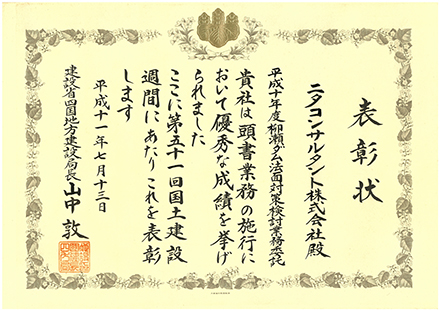 表彰状
ニタコンサルタント株式会社殿
平成十年度柳瀬ダム法面対策検討業務委託
貴社は頭書業務の施行に
おいて優秀な成績を挙げ
られました
ここに第五十一回国土建設
週間にあたりこれを表彰
します
平成十一年七月十三日
建設省四国地方建設局長山中敦